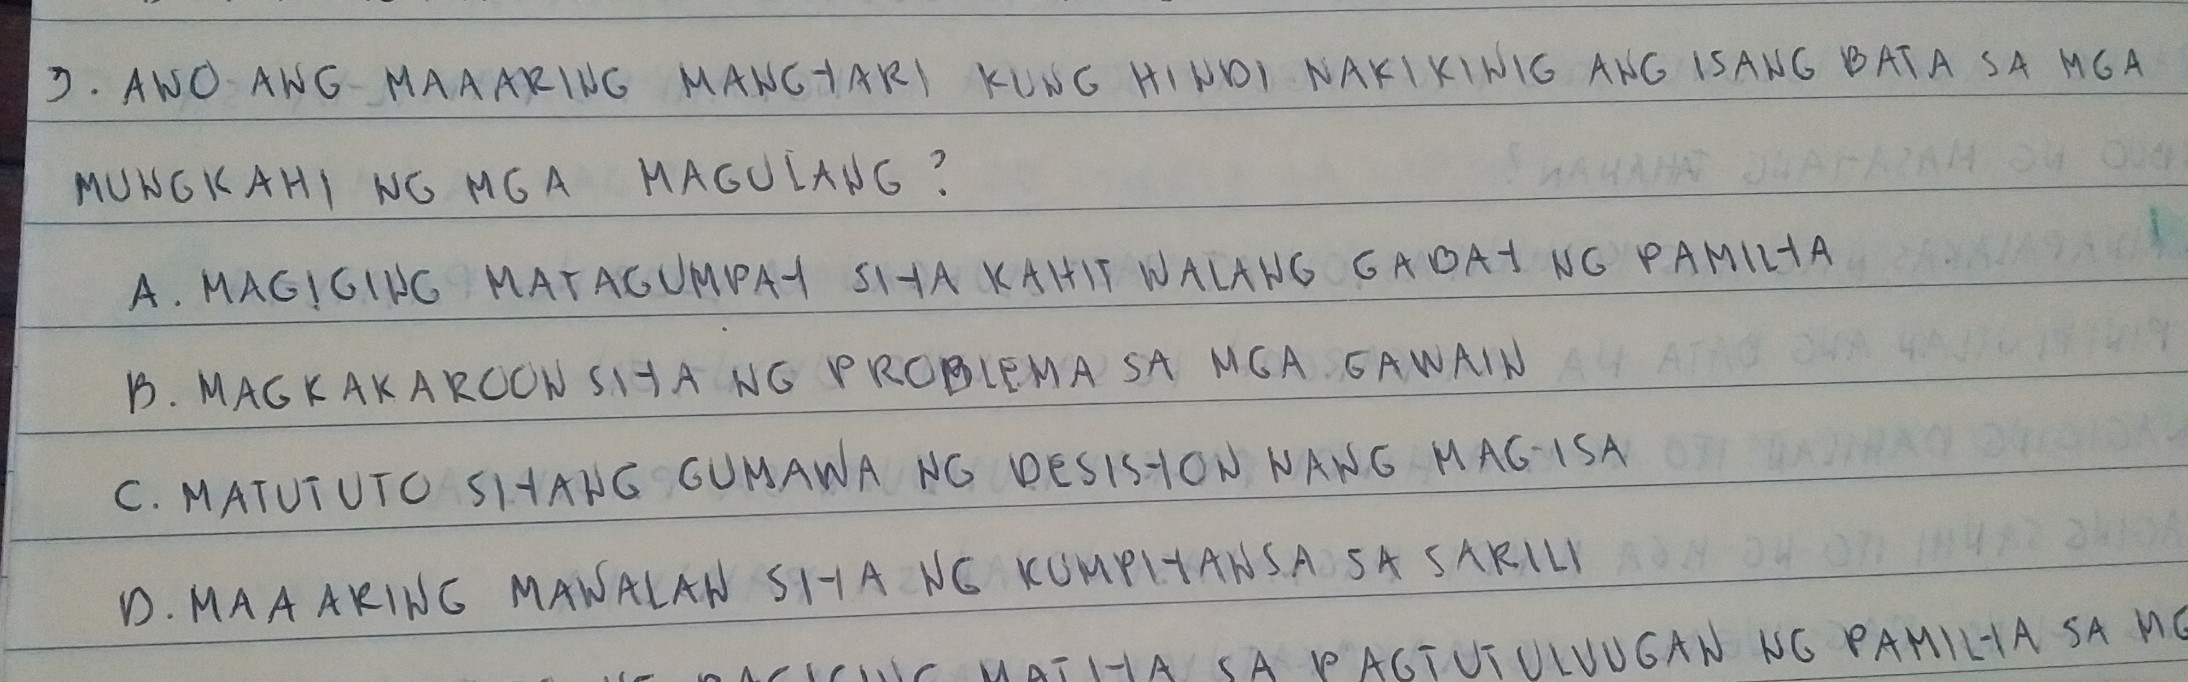 3. ANO ANG MAAARING MANGYARI KUNG HINDI NAKIKINIG ANG ISANG BATA SA MGA
MUNGKAHI NG MGA MAGULANG?
A. MAGIGING MATAGUMPAY SIYA KAHIT WALANG GABAY NG PAMILYA
B. MAGKAKAROON SIYA NG PROBLEMA SA MGA GAWAIN
C. MATUTUTO SIYANG GUMAWA NG DESISYON NANG MAG-ISA
D. MAAARING MAWALAN SIYA NG KUMPIYANSA SA SARILI
PAGIGING MATIYA SA PAGTUTULUUGAN NG PAMILYA SA